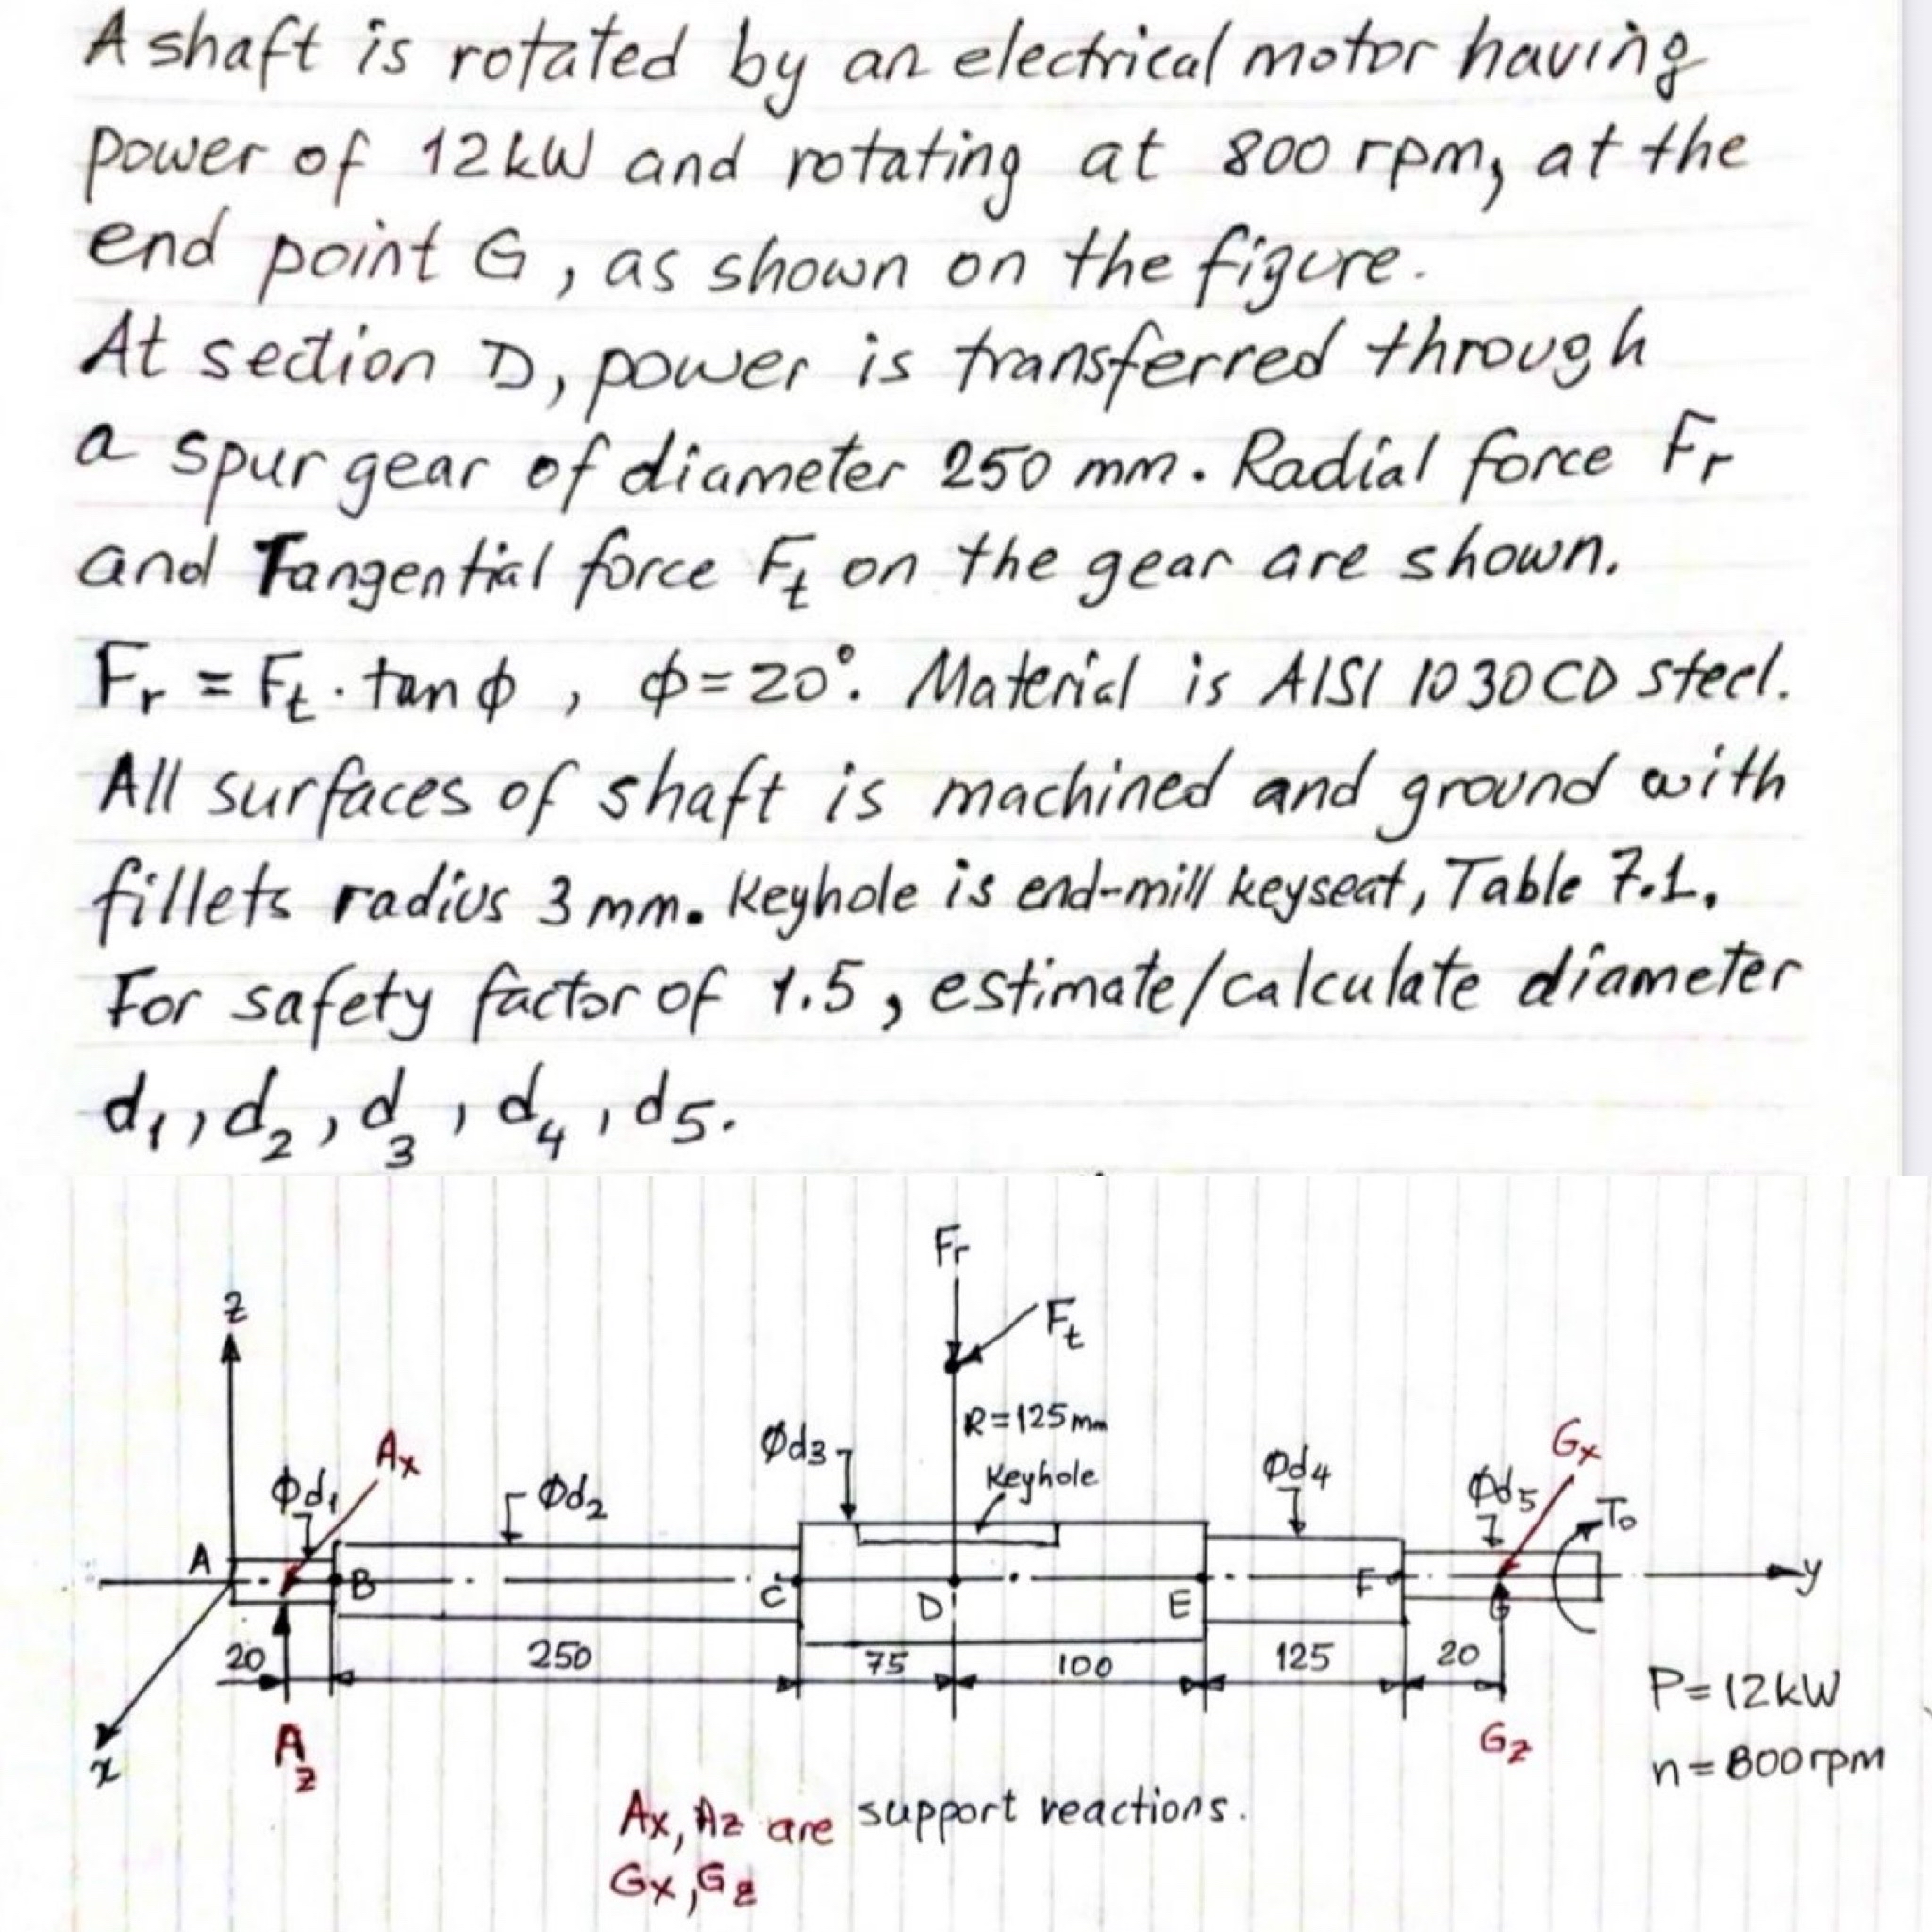 A shaft is rotated by an electrical motor having
power of 12kW and rotating at 800 rpm, at the
end point G, as shown on the figure.
At section D, power is transferred through
a spur gear of diameter 250 mm. Radial force Fr
and Tangential force Ft on the gear are shown.
Fr = Ft . tan ϕ , ϕ = 20°. Material is AISI 1030 CD steel.
All surfaces of shaft is machined and ground with
fillets radius 3 mm. Keyhole is end-mill keyseat, Table 7.1.
For safety factor of 1.5, estimate/calculate diameter
d1, d2, d3, d4, d5.
Fr
z
Ft
R=125mm
Ax
Φd3
Keyhole
Φd4
Gx
Φd1
Φd2
Φd5
To
A
B
C
D
E
F
G
y
20
250
75
100
125
20
P=12kW
x
Az
Gz
n=800rpm
Ax, Az are support reactions.
Gx, Gz